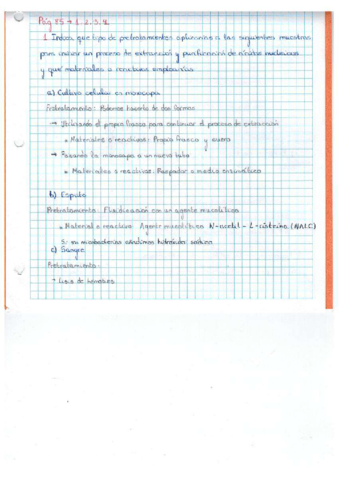 Pág 85 → 1, 2, 3, 4
1. Indica que tipo de pretratamientos aplicarías a las siguientes muestras
para iniciar un proceso de extracción y purificación de ácidos nucleicos
y qué materiales o reactivos emplearías
a) Cultivo celular en monocapa
Pretratamiento: Podemos hacerlo de dos formas
→ Utilizando el propio frasco para continuar el proceso de extracción
• Materiales o reactivos: Propio frasco y
→ Pasando la monocapa a un nuevo tubo
• Materiales o reactivos: Raspador o medio enzimático
b) Esputo
Pretratamiento: Fluidificación con un agente mucolítico
• Material o reactivo: Agente mucolítico N-acetil-L-cisteína (NALC)
Si en micobacterias añadimos hidróxido sódico
c) Sangre
Pretratamiento:
- Lisis de hematíes